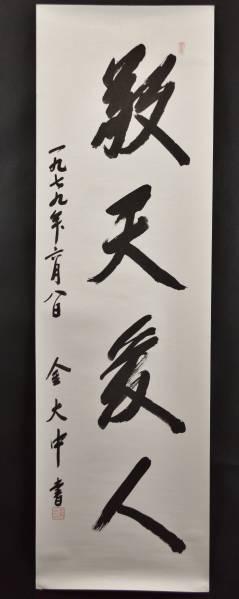 敬天愛人
一九七九年六月八日 金大中書